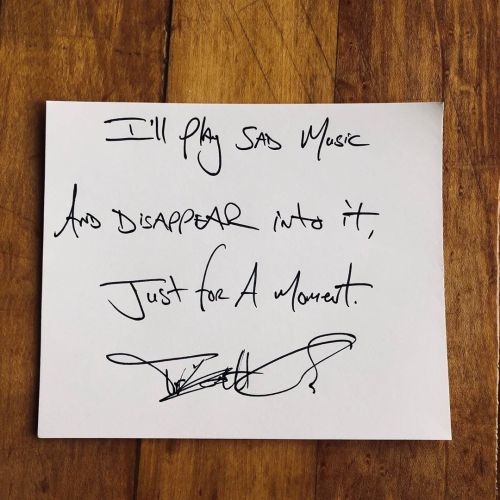 I'll Play SAD Music
AND DISAPPEAR into it,
Just for A Moment.